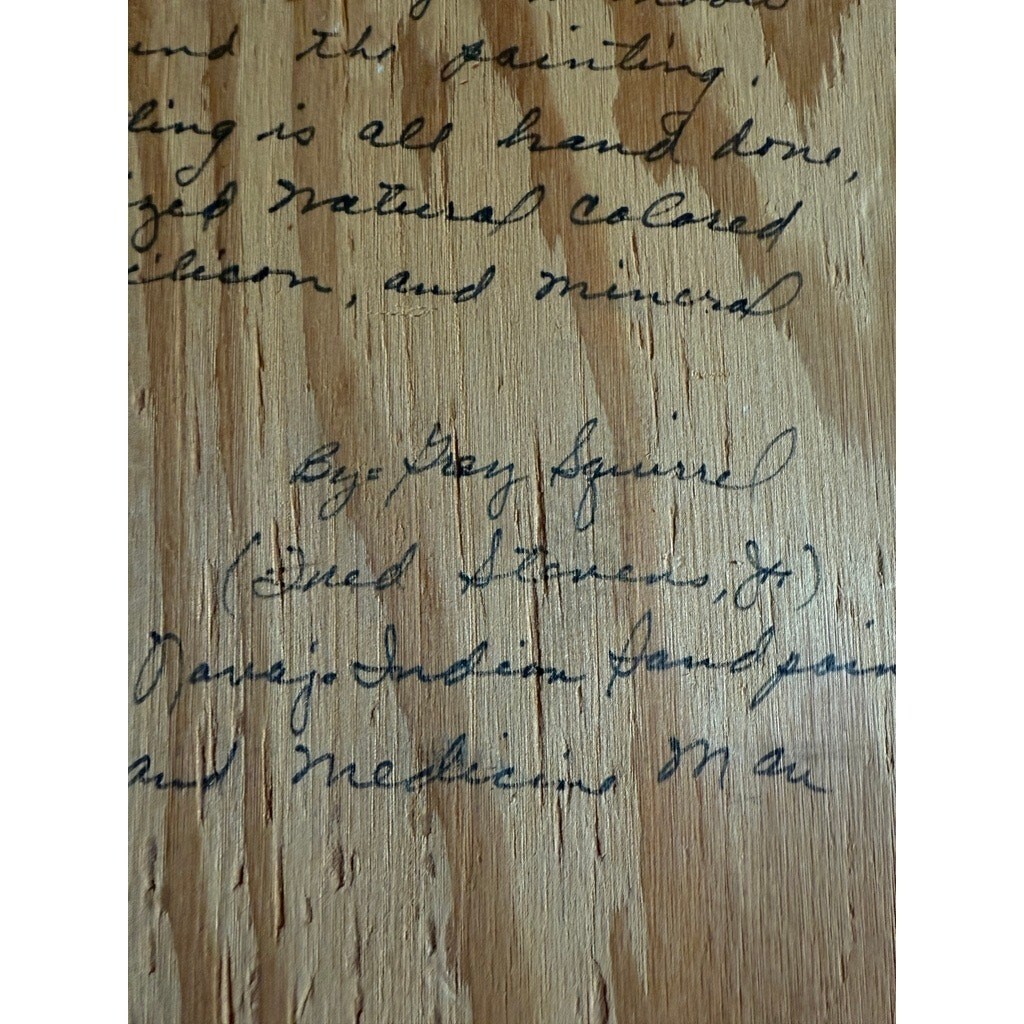 and the painting.
ling is all hand done,
zed natural colored
ilicon, and mineral
By: Grey Squirrel
(Fred Stevens, Jr)
Navajo Indian Sandpain
and Medicine Man